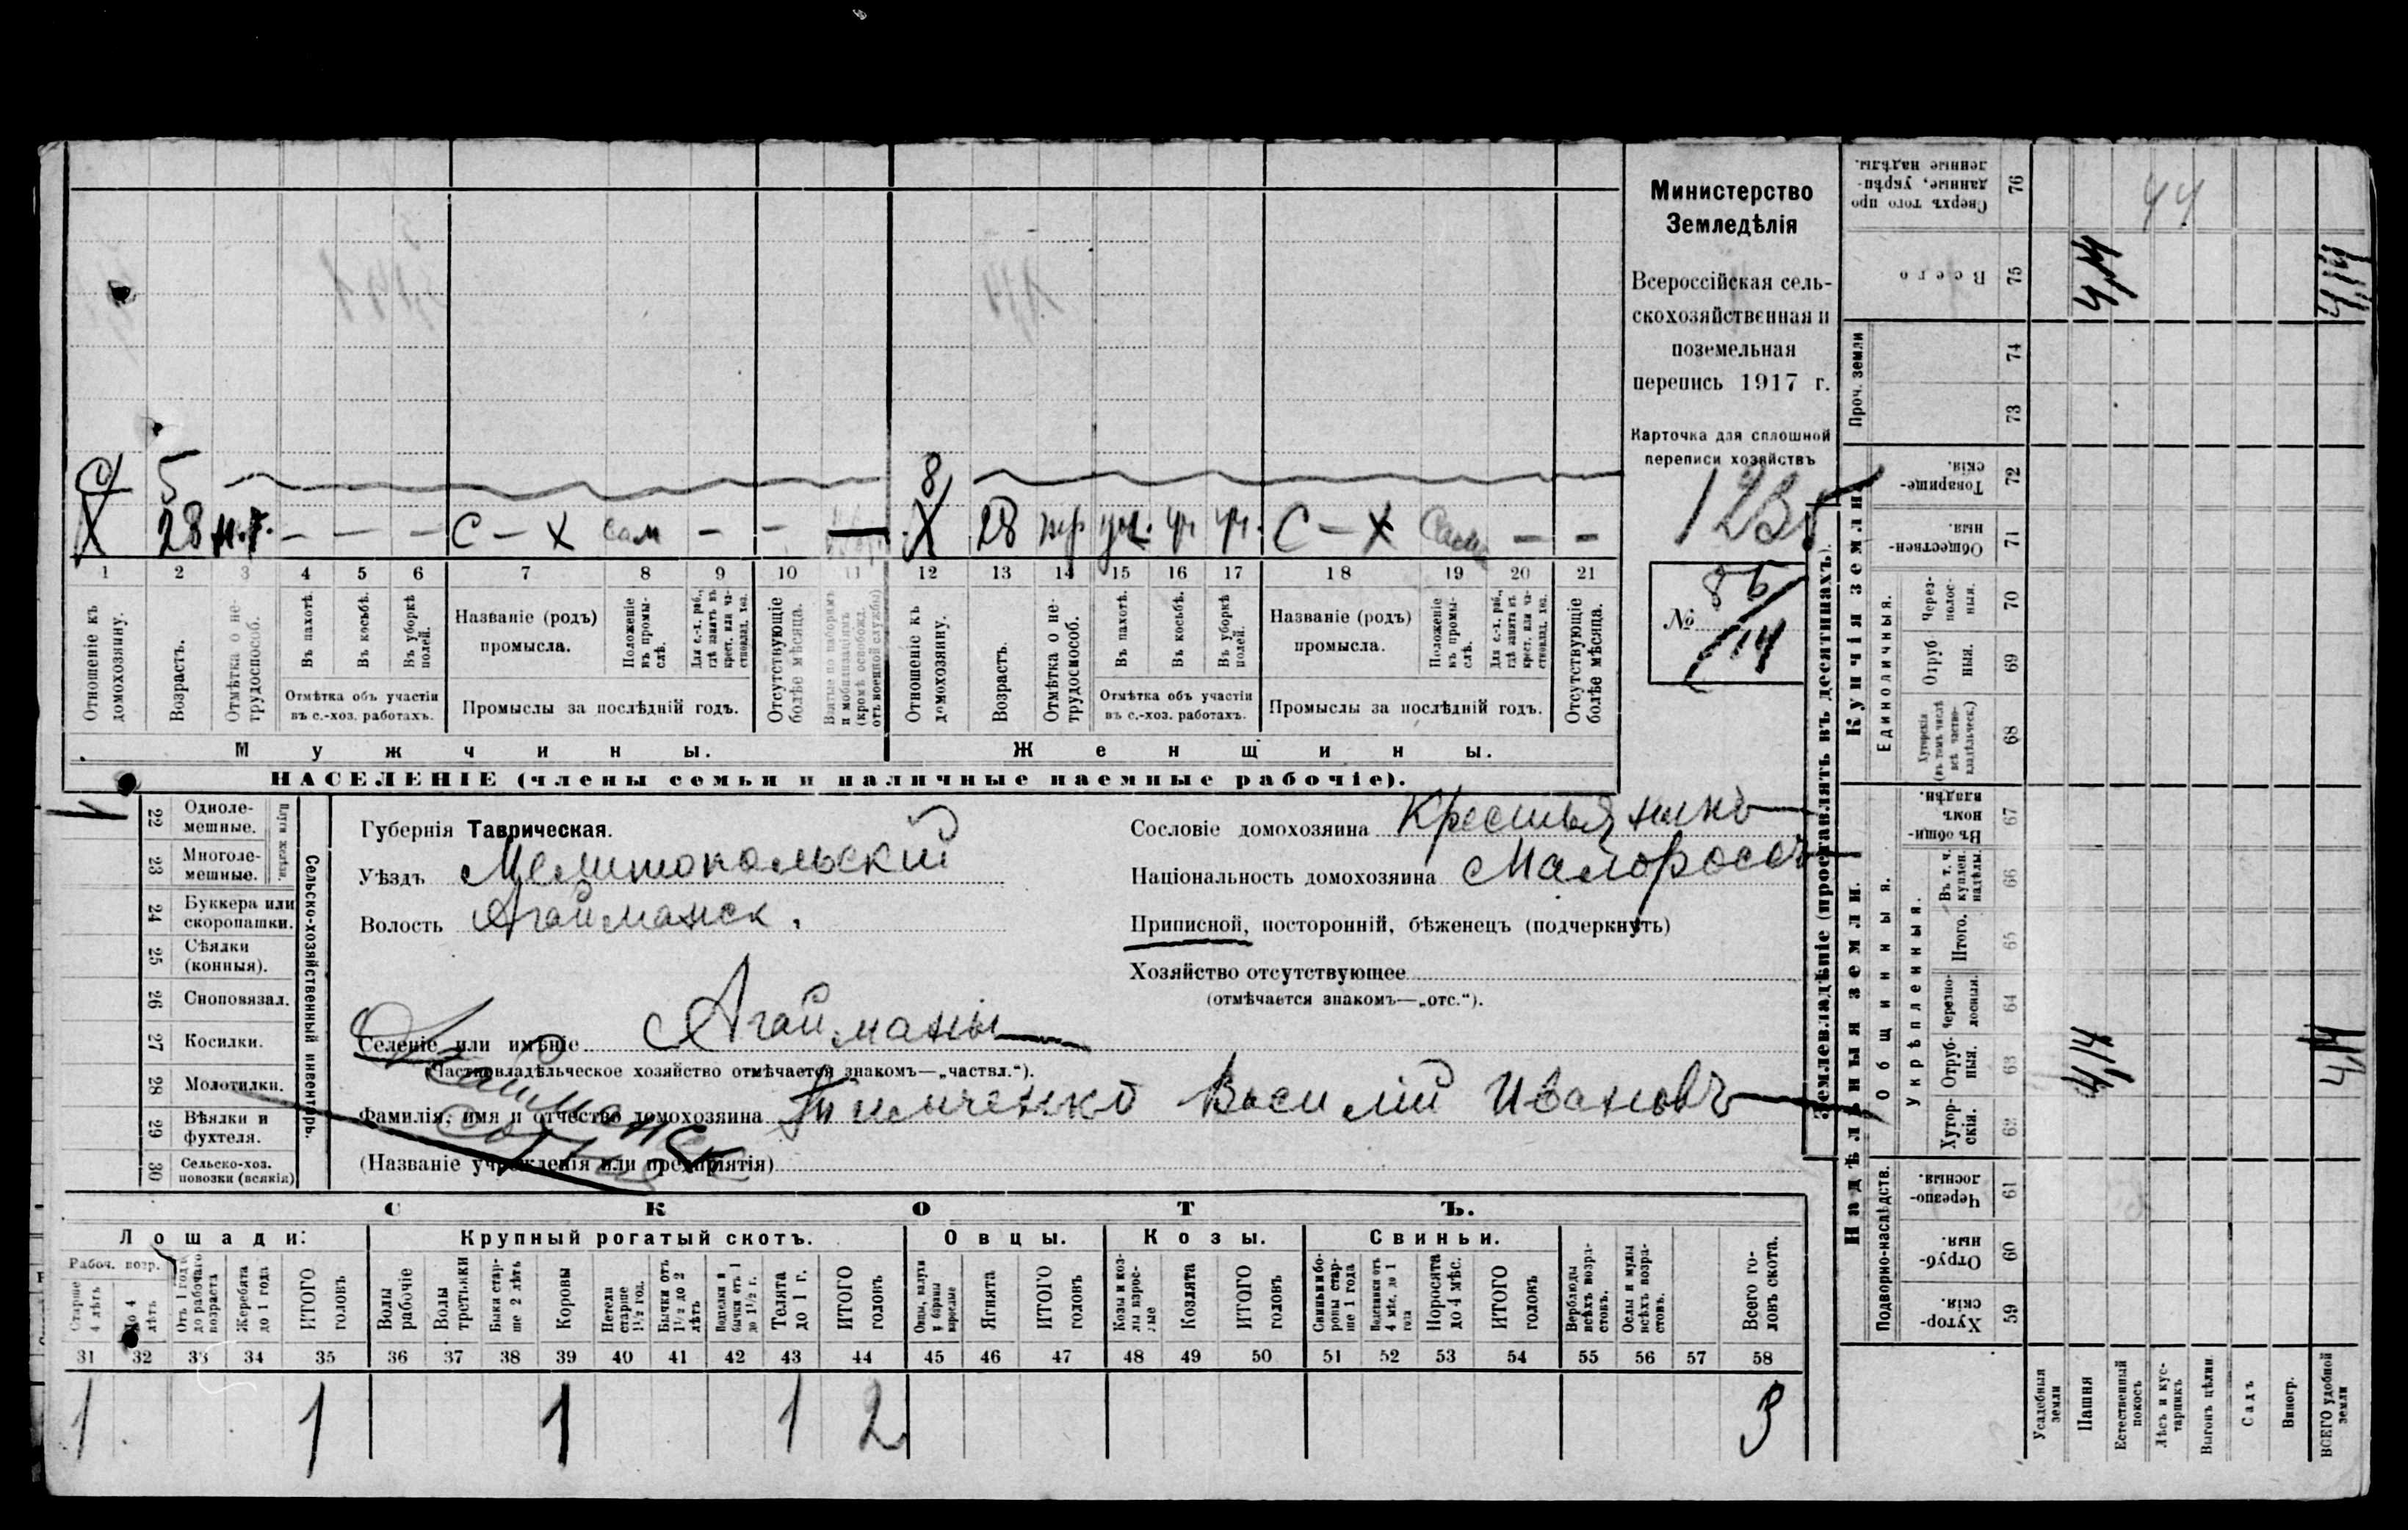 С 5
8
Х 28 н.т. — — — С – Х сам — — —
Х 28 тр уч. уч уч. С – Х сам — —
1 2 3 4 5 6 7 8 9 10 11 12 13 14 15 16 17 18 19 20 21
Отношеніе къ домохозяину.
Возрастъ.
Отмѣтка о не-
трудоспособ.
Въ пахотѣ.
Въ косьбѣ.
Въ уборкѣ
полей.
Отмѣтка объ участіи
въ с.-хоз. работахъ.
Названіе (родъ)
промысла.
Положеніе
въ промы-
слѣ.
Для с.-х. раб.,
гдѣ занятъ въ
крест. или ча-
стновлад. хоз.
Промыслы за послѣдній годъ.
Отсутствующіе
болѣе мѣсяца.
Взятые по наборамъ
и мобилизаціямъ
(кромѣ освобожд.
отъ военной службы)
Отношеніе къ
домохозяину.
Возрастъ.
Отмѣтка о не-
трудоспособ.
Въ пахотѣ.
Въ косьбѣ.
Въ уборкѣ
полей.
Отмѣтка объ участіи
въ с.-хоз. работахъ.
Названіе (родъ)
промысла.
Положеніе
въ промы-
слѣ.
Для с.-х. раб.,
гдѣ занята въ
крест. или ча-
стновлад. хоз.
Промыслы за послѣдній годъ.
Отсутствующіе
болѣе мѣсяца.
Мужчины.
Женщины.
НАСЕЛЕНІЕ (члены семьи и наличные наемные рабочіе).
Министерство
Земледѣлія
Всероссійская сель-
скохозяйственная и
поземельная
перепись 1917 г.
Карточка для сплошной
переписи хозяйствъ
1235
№ 86/14
22 Одноле-
мешные.
23 Многоле-
мешные.
Плуги желѣзн.
24 Буккера или
скоропашки.
25 Сѣялки
(конныя).
26 Сноповязал.
27 Косилки.
28 Молотилки.
29 Вѣялки и
фухтеля.
30 Сельско-хоз.
повозки (всякія)
Сельско-хозяйственный инвентарь.
Губернія Таврическая.
Уѣздъ Мелитопольскій
Волость Агайманск.
Селеніе или имѣніе Агайманы
(Частновладѣльческое хозяйство отмѣчается знакомъ—„частвл.“).
Фамилія, имя и отчество домохозяина Тимченко Василій Ивановъ
(Названіе учрежденія или предпріятія)
Сословіе домохозяина Крестьянинъ
Національность домохозяина Малороссъ
Приписной, посторонній, бѣженецъ (подчеркнуть)
Хозяйство отсутствующее
(отмѣчается знакомъ—„отс.“).
СКОТЪ.
Лошади:
Крупный рогатый скотъ.
Овцы.
Козы.
Свиньи.
Рабоч. возр.
Старше
4 лѣтъ
До 4
лѣтъ
Отъ 1 года
до рабочаго
возраста
Жеребята
до 1 года
ИТОГО
головъ
Волы
рабочіе
Волы
третьяки
Быки стар-
ше 2 лѣтъ
Коровы
Нетели
старше
1½ год.
Бычки отъ
1½ до 2
лѣтъ
Подтелки и
бычки отъ 1
до 1½ г.
Телята
до 1 г.
ИТОГО
головъ
Овцы, валухи
и бараны
взрослые
Ягнята
ИТОГО
головъ
Козы и коз-
лы взрос-
лые
Козлята
ИТОГО
головъ
Свиньи и бо-
ровы стар-
ше 1 года
Подсвинки отъ
4 мѣс. до 1
года
Поросята
до 4 мѣс.
ИТОГО
головъ
Верблюды
всѣхъ возра-
стовъ.
Ослы и мулы
всѣхъ возра-
стовъ.
Всего го-
ловъ скота.
31 32 33 34 35 36 37 38 39 40 41 42 43 44 45 46 47 48 49 50 51 52 53 54 55 56 57 58
1 1 1 1 2 3
Землевладѣніе (проставлять въ десятинахъ).
Надѣльныя земли.
Купчія земли.
Проч. земли
Подворно-наслѣдств.
Общинныя.
Укрѣпленныя.
Единоличныя.
59 Хутор-
скія.
60 Отруб-
ныя.
61 Черезпо-
лосныя.
62 Хутор-
скія.
63 Отруб-
ныя.
64 Черезпо-
лосныя.
65 Итого.
66 Въ т. ч.
куплен.
надѣлы.
67 Въ общин-
номъ
владѣн.
68 Хуторскія
(въ томъ числѣ
всѣ частно-
владѣльческ.)
69 Отруб
ныя.
70 Через-
полос-
ныя.
71 Обществен-
ныя.
72 Товарище-
скія.
73
74
75 Всего
76 Сверхъ того про
данные, укрѣп-
ленные надѣлы.
Усадебныя
земли
Пашня
Естественный
покосъ
Лѣсъ и кус-
тарникъ
Выгонъ цѣлин.
Садъ
Виногр.
ВСЕГО удобной
земли